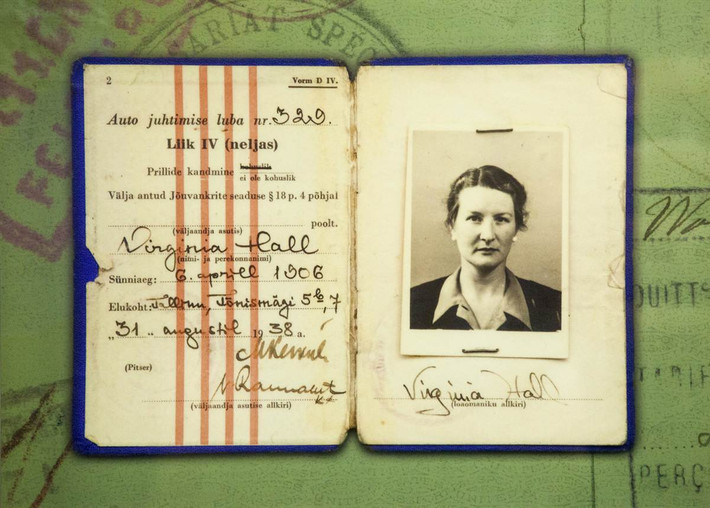 ARIAT SPEC
2 Vorm D IV.
Auto juhtimise luba nr. 329.
Liik IV (neljas)
Prillide kandmine kohuslik
ei ole kohuslik
Välja antud Jõuvankrite seaduse § 18 p. 4 põhjal
poolt.
(väljaandja asutis)
Virginia Hall
(nimi- ja perekonnanimi)
Sünniaeg: 6. aprill 1906
Elukoht: Tallinn, Tõnismägi 5b, 7
„31„ augustil 1938 a.
(Pitser)
(väljaandja asutise allkiri)
Virginia Hall
(loaomaniku allkiri)
PERÇ